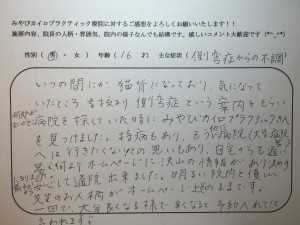 みやびカイロプラクティック療院に対するご感想をよろしくお願いします！！
施術内容、院長の人柄・雰囲気、院内の様子なんでも結構です。嬉しいコメント大歓迎です (*^_^*)
性別 ( 男 ・ 女 ) 年齢 ( 16 才 ) 主な症状 ( 側弯症からの不調
いつの間にか、猫背になっており、気になって
いたところ 学校より 側弯症という 案内をもらい、
療院を探していた日に みやびカイロプラクティックさん
を見つけました。持病もあり、もう 病院(大学病院
へは 行きたくないとの思いもあり、自宅からも近い
何より ホームページに 沢山の情報があり
安心して通院 出来ました。明るい 院内と優しい
先生のお人柄が ホームページ のままです。
一回で、大分 良くなる様で 早くなると 予約入れてと
言われます。